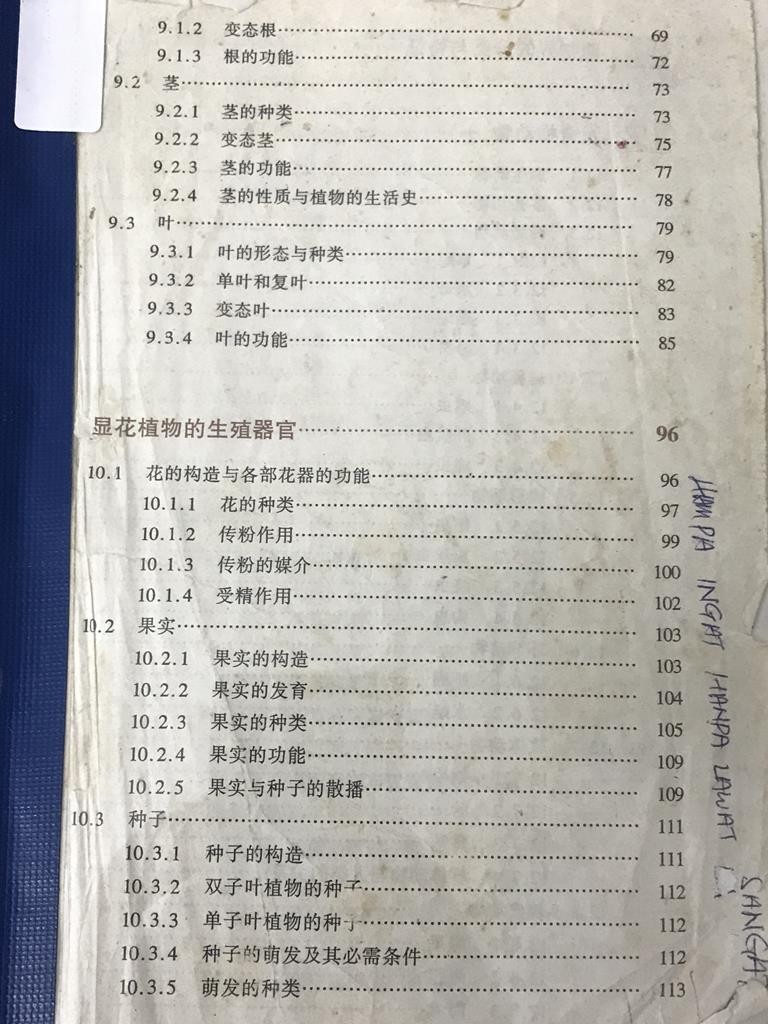 9.1.2 变态根 69
9.1.3 根的功能 72
9.2 茎 73
9.2.1 茎的种类 73
9.2.2 变态茎 75
9.2.3 茎的功能 77
9.2.4 茎的性质与植物的生活史 78
9.3 叶 79
9.3.1 叶的形态与种类 79
9.3.2 单叶和复叶 82
9.3.3 变态叶 83
9.3.4 叶的功能 85
显花植物的生殖器官 96
10.1 花的构造与各部花器的功能 96
10.1.1 花的种类 97
10.1.2 传粉作用 99
10.1.3 传粉的媒介 100
10.1.4 受精作用 102
10.2 果实 103
10.2.1 果实的构造 103
10.2.2 果实的发育 104
10.2.3 果实的种类 105
10.2.4 果实的功能 109
10.2.5 果实与种子的散播 109
10.3 种子 111
10.3.1 种子的构造 111
10.3.2 双子叶植物的种子 112
10.3.3 单子叶植物的种子 112
10.3.4 种子的萌发及其必需条件 112
10.3.5 萌发的种类 113
HAMPA INGAT HANPA LAWAT